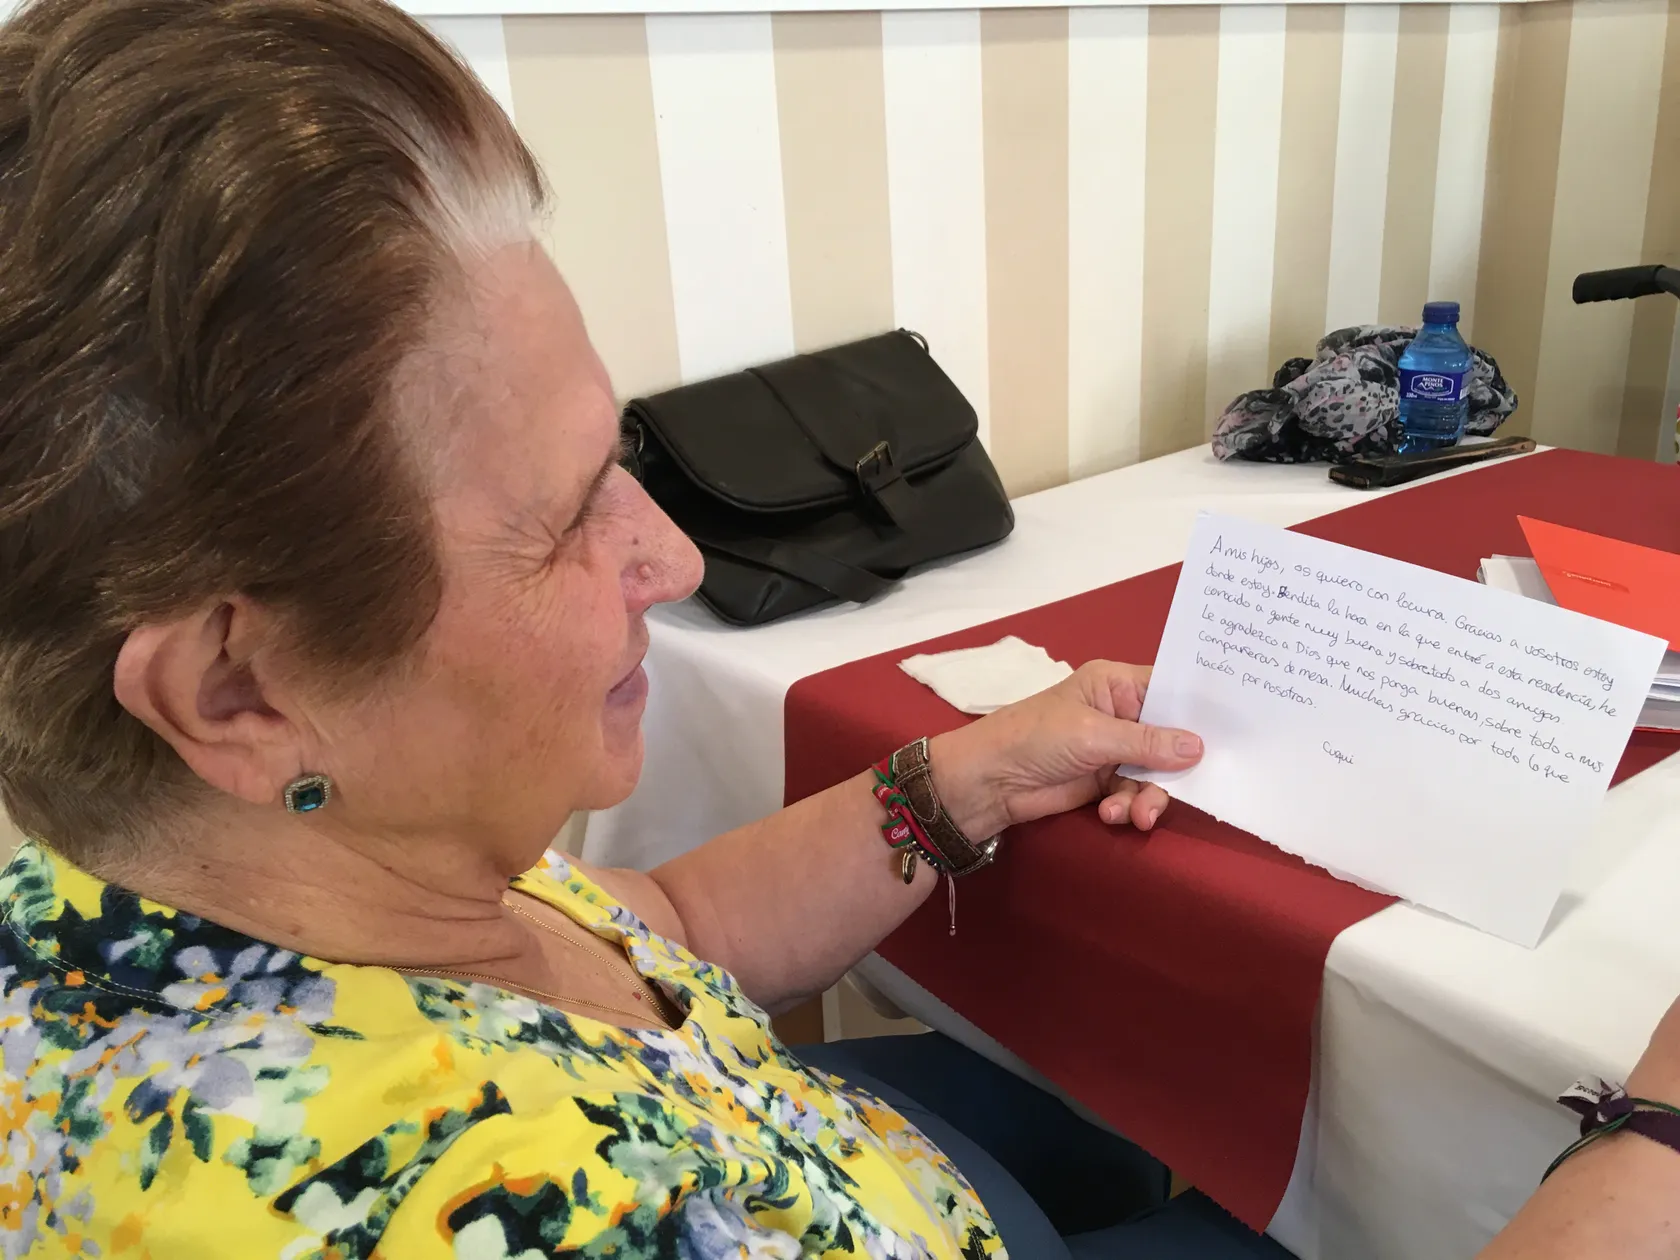 A mis hijos, os quiero con locura. Gracias a vosotros estoy
donde estoy. Bendita la hora en la que entré a esta residencia, he
conocido a gente muy buena y sobretodo a dos amigas.
Le agradezco a Dios que nos ponga buenas, sobre todo a mis
compañeras de mesa. Muchas gracias por todo lo que
hacéis por nosotras.
Cuqui
MONTE
PINOS